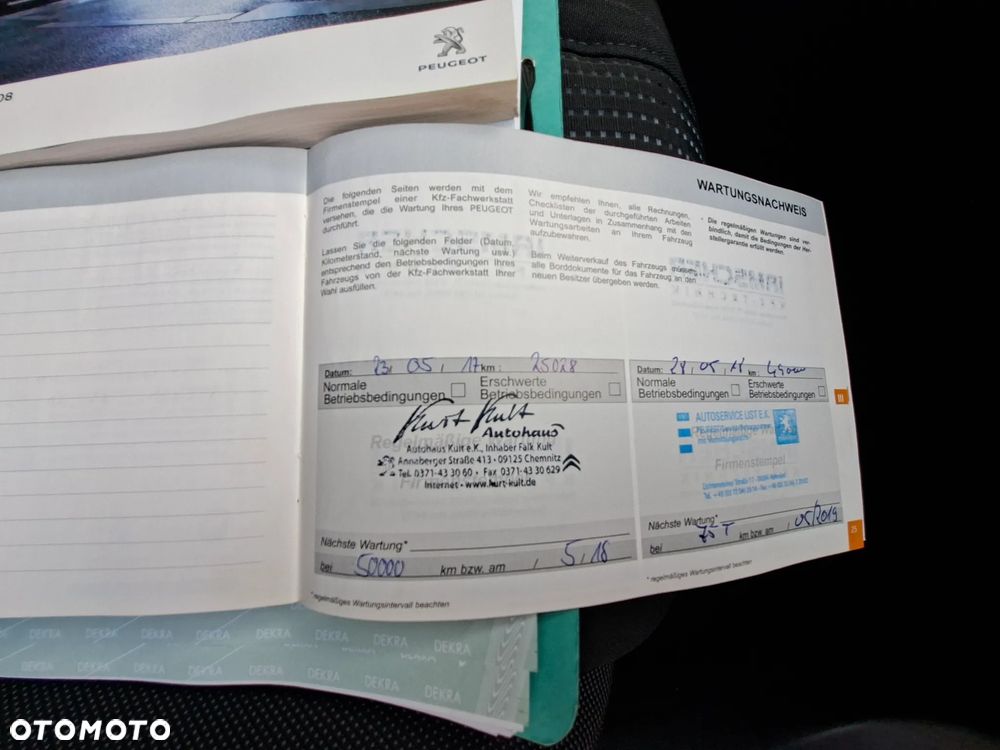 PEUGEOT
08
WARTUNGSNACHWEIS
Die folgenden Seiten werden mit dem
Firmenstempel einer Kfz-Fachwerkstatt
versehen, die die Wartung Ihres PEUGEOT
durchführt.
Lassen Sie die folgenden Felder (Datum,
Kilometerstand, nächste Wartung usw.)
entsprechend den Betriebsbedingungen Ihres
Fahrzeugs von der Kfz-Fachwerkstatt Ihrer
Wahl ausfüllen.
Wir empfehlen Ihnen, alle Rechnungen,
Checklisten der durchgeführten Arbeiten
und Unterlagen in Zusammenhang mit den
Wartungsarbeiten an Ihrem Fahrzeug
aufzubewahren.
Beim Weiterverkauf des Fahrzeugs müssen
alle Borddokumente für das Fahrzeug an den
neuen Besitzer übergeben werden.
* Die regelmäßigen Wartungen sind ver-
bindlich, damit die Bedingungen der Her-
stellergarantie erfüllt werden.
Datum: 23. 05, 17 km: 25028
Normale Betriebsbedingungen
Erschwerte Betriebsbedingungen
Kurt Kult
Autohaus
Autohaus Kult e.K., Inhaber Falk Kult
Annaberger Straße 413 · 09125 Chemnitz
Tel. 0371-43 30 60 · Fax 0371-43 30 629
Internet · www.kurt-kult.de
Regelmäßige
Nächste Wartung*
bei 50000 km bzw. am / 5, 18
* regelmäßiges Wartungsintervall beachten
Datum: 28, 05, 18 km:
Normale Betriebsbedingungen
Erschwerte Betriebsbedingungen
AUTOSERVICE UST E.K.
Firmenstempel
Nächste Wartung*
bei 75 T km bzw. am / 05/2019
* regelmäßiges Wartungsintervall beachten
III
25
DEKRA DEKRA DEKRA DEKRA DEKRA
DEKRA DEKRA DEKRA DEKRA
OTOMOTO